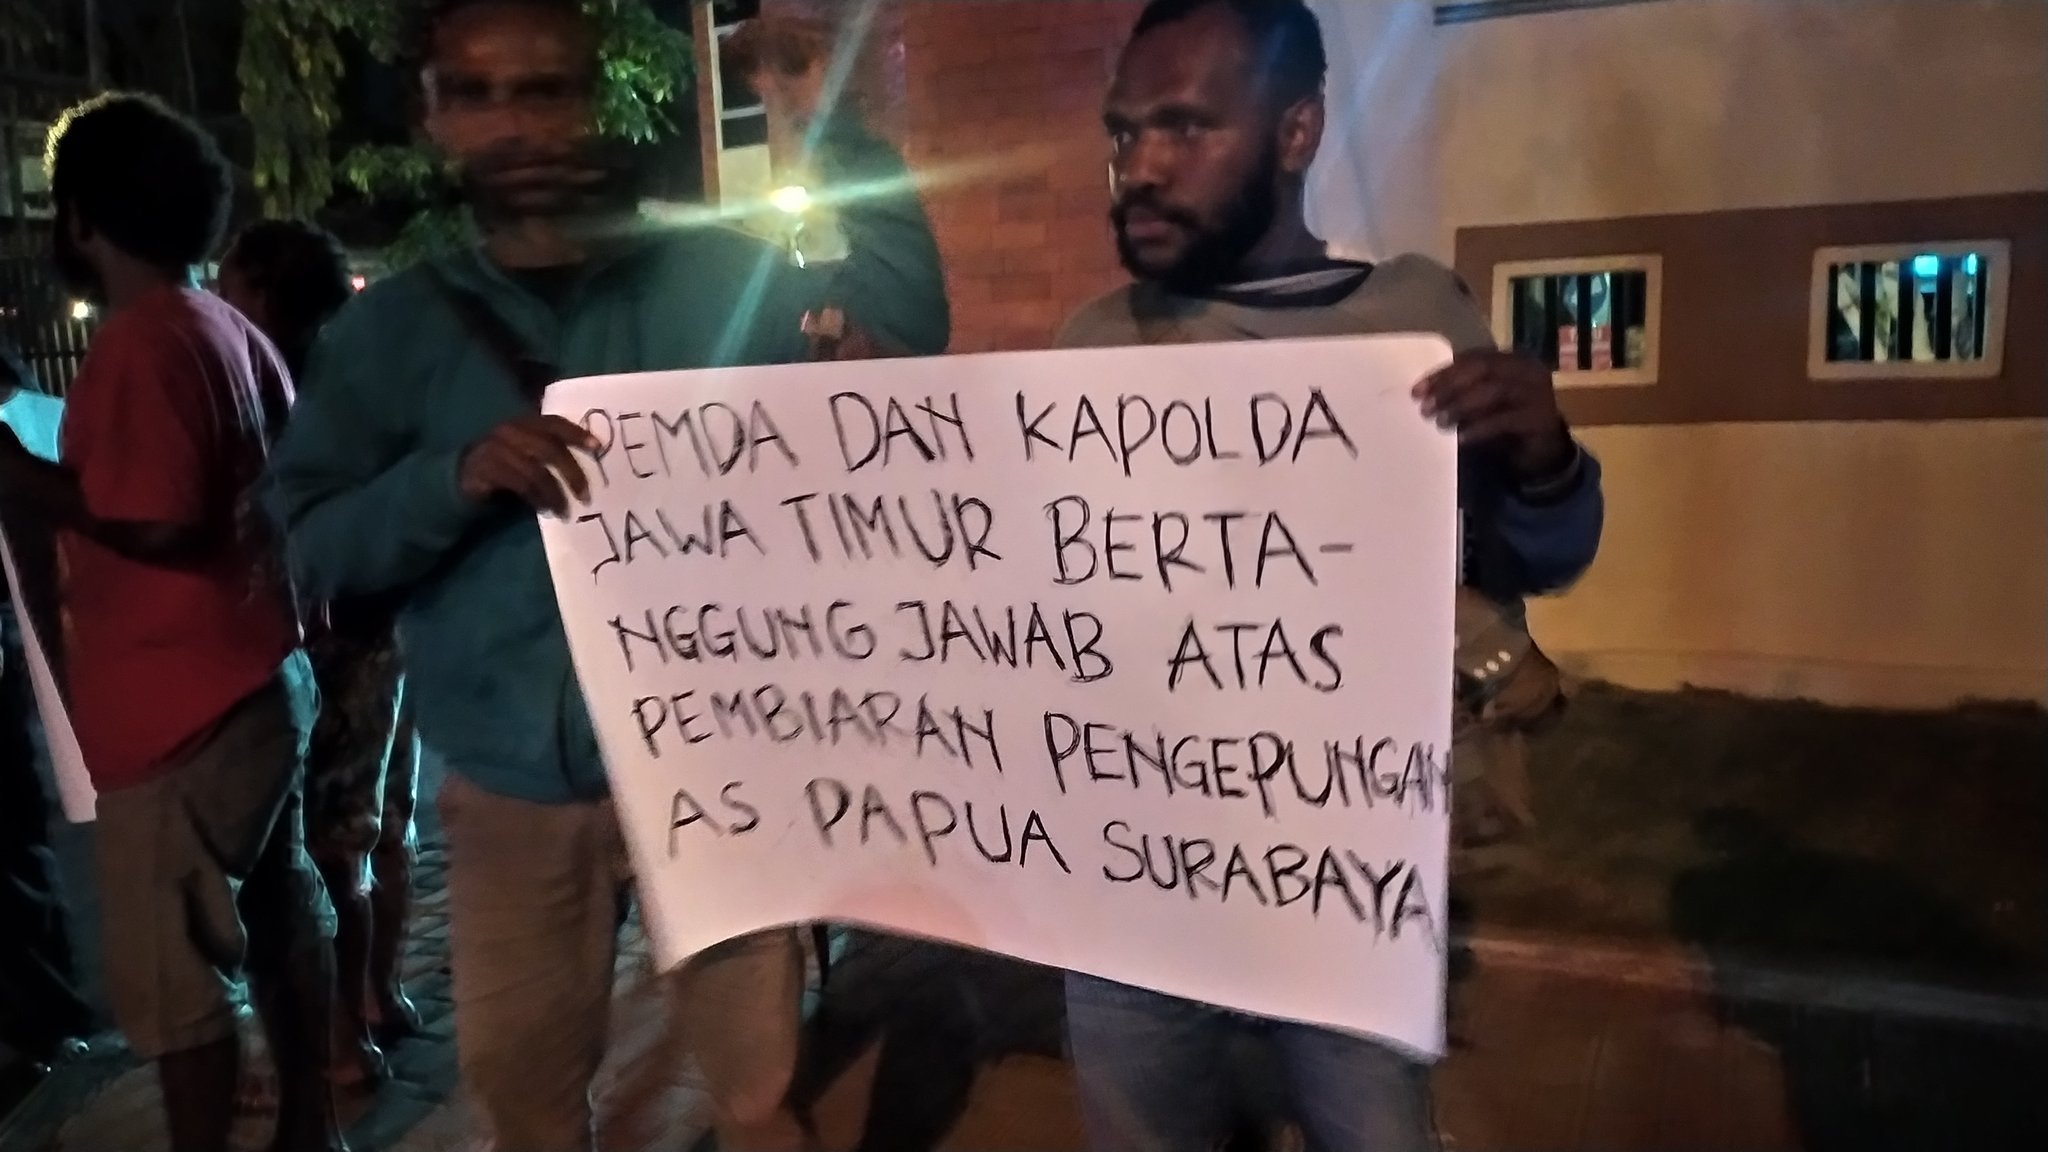 PEMDA DAN KAPOLDA
JAWA TIMUR BERTA-
NGGUNG JAWAB ATAS
PEMBIARAN PENGEPUNGAN
AS PAPUA SURABAYA